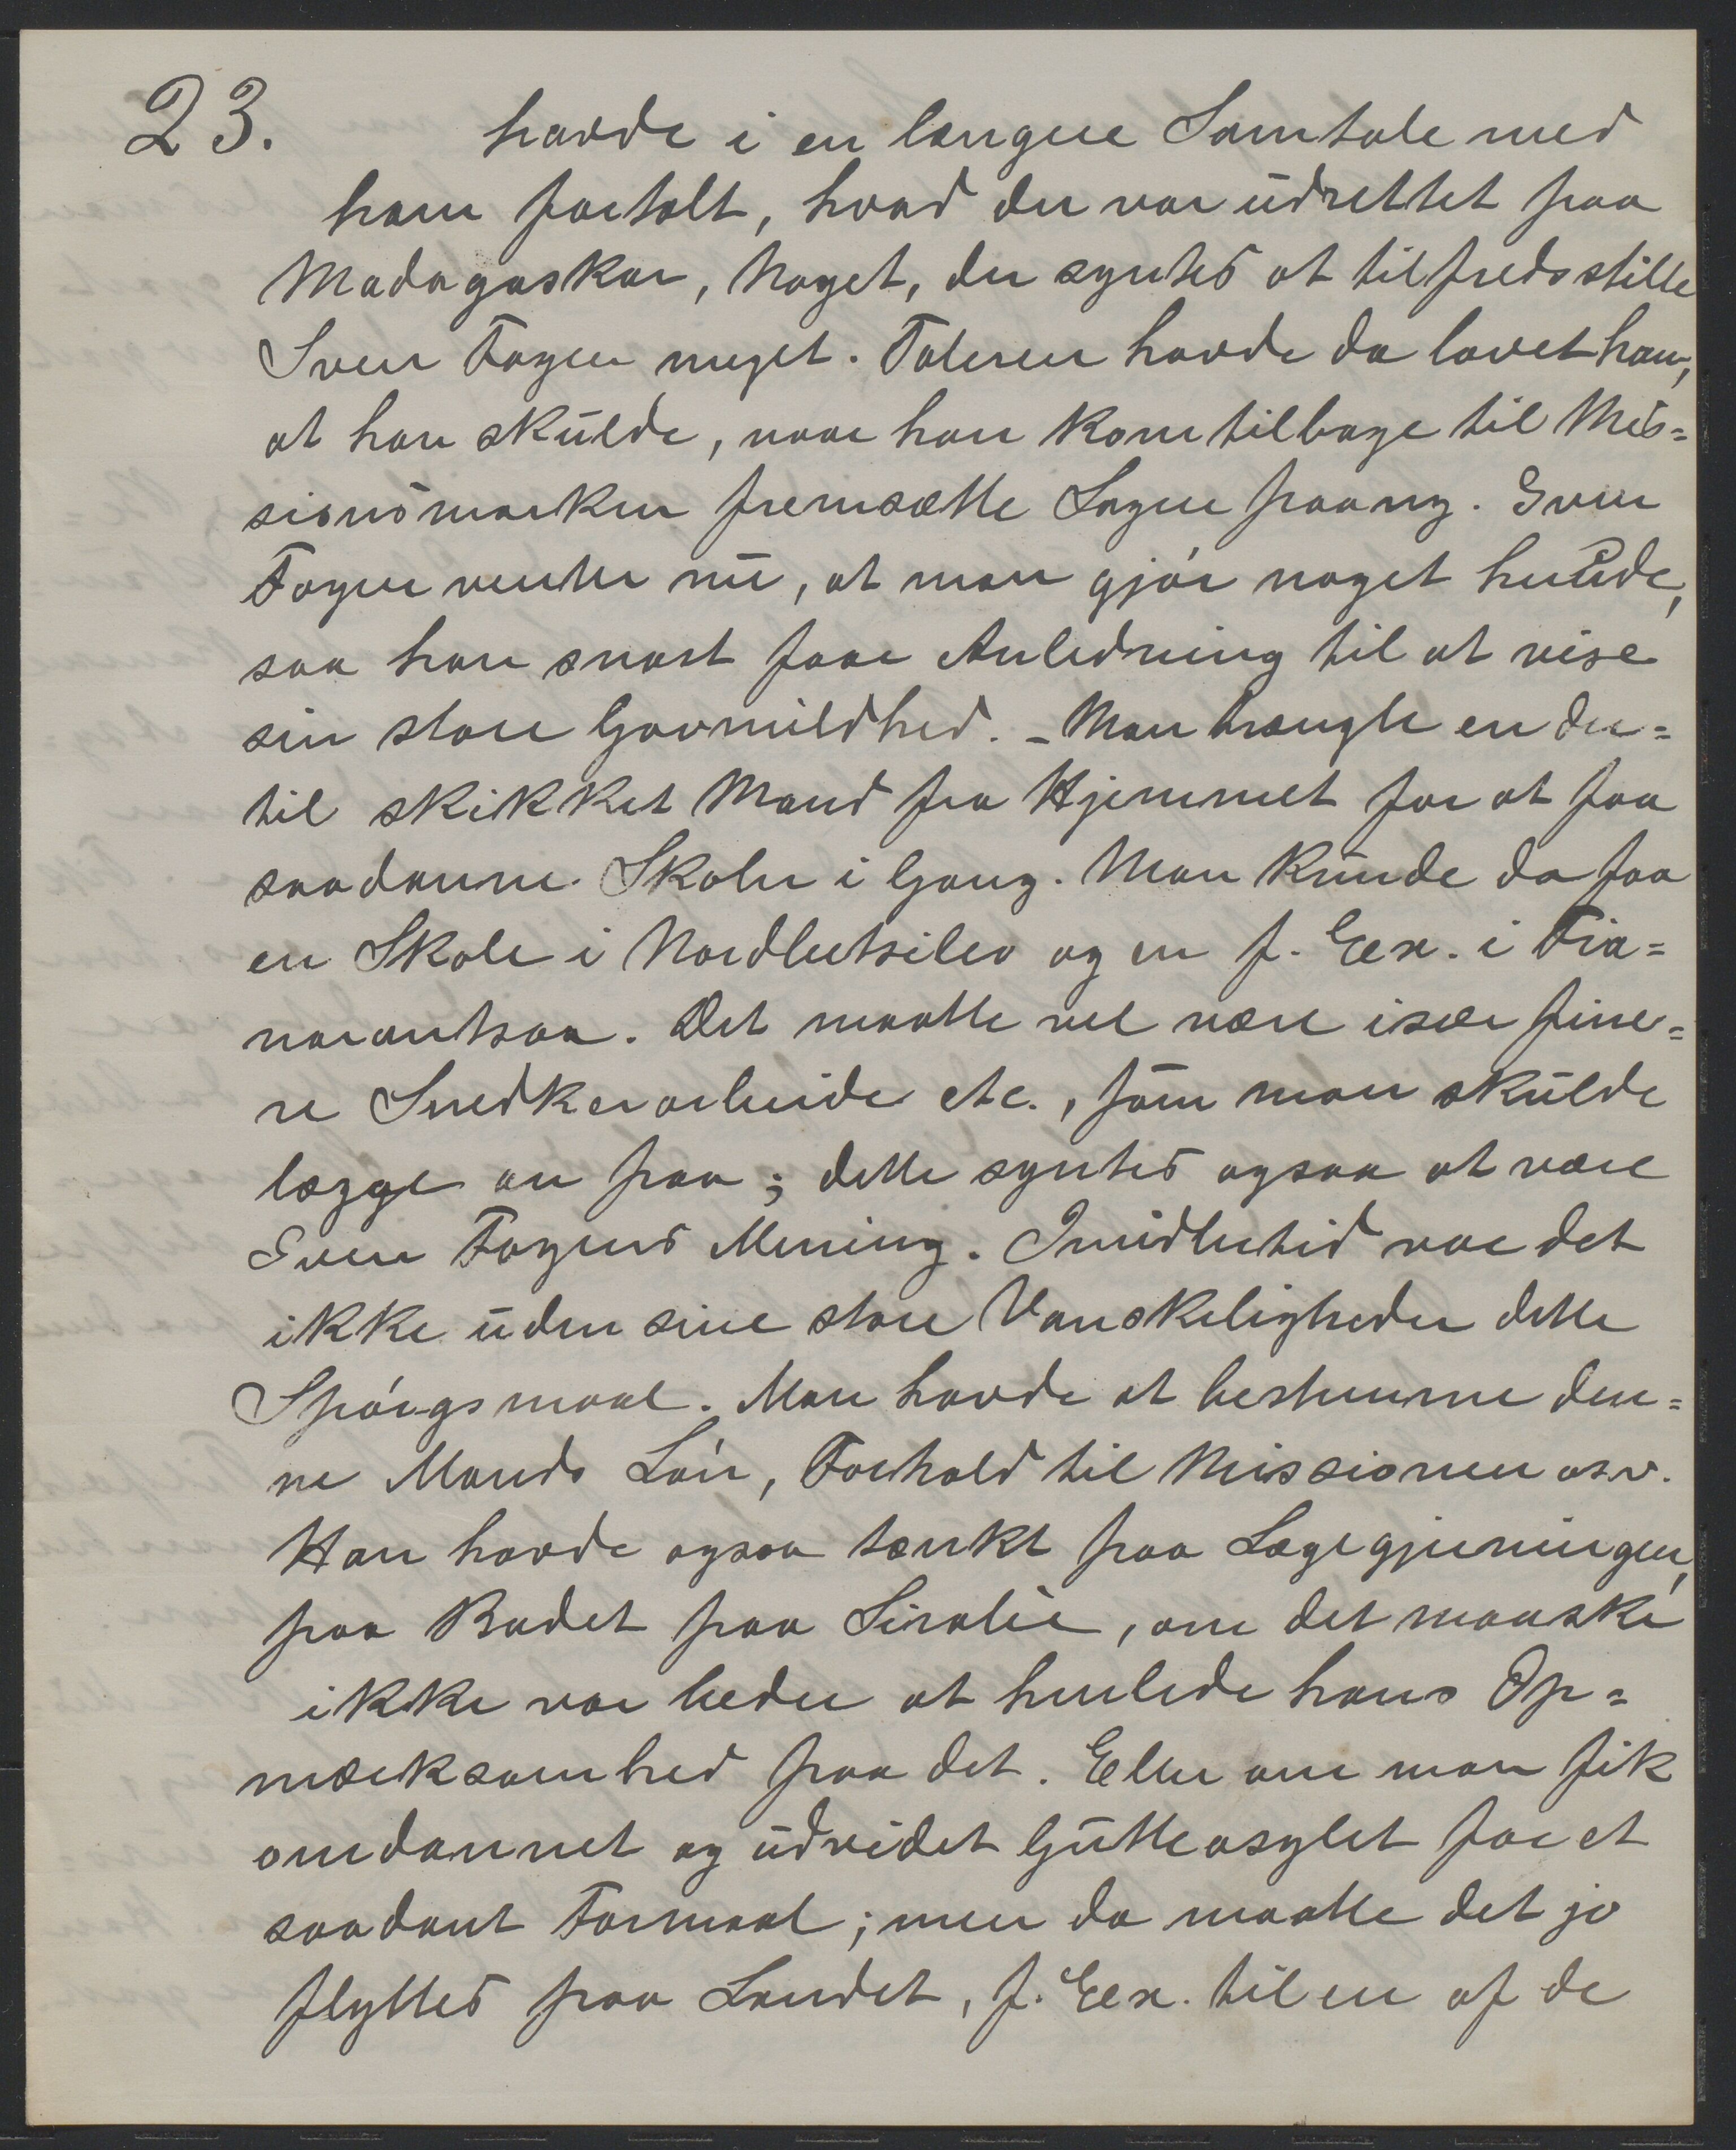 23.
havde i en længere Samtale med
ham fortalt, hvad der var udrettet paa
Madagaskar, Noget, der syntes at tilfredsstille
Sven Foyen meget. Taleren havde da lovet ham,
at han skulde, naar han kom tilbage til Mis=
sionsmarken fremsætte Sagen paany. Sven
Foyen venter nu, at man gjør noget herude,
saa han snart faar Anledning til at vise
sin store Gavmildhed. - Man trængte en der=
til skikket Mand fra Hjemmet for at faa
saadanne Skoler i Gang. Man kunde da faa
en Skole i Nordbetsileo og en f. Eex. i Fia=
narantsoa. Det maatte vel være især fine=
re Snedkerarbeide etc., som man skulde
lægge an paa; dette syntes ogsaa at være
Sven Foyens Mening. Imidlertid var det
ikke uden sine store Vanskeligheder dette
Spørgsmaal. Man havde at bestemme den=
ne Mands Løn, Forhold til Missionen osv.
Han havde ogsaa tænkt paa Lægegjerningen,
paa Badet paa Sirabè, om det maaske
ikke var bedre at henlede hans Op=
mærksomhed paa det. Eller om man fik
omdannet og udvidet Gutteasylet for et
saadant Formaal; men da maatte det jo
flyttes paa Landet, f. Eex. til en af de